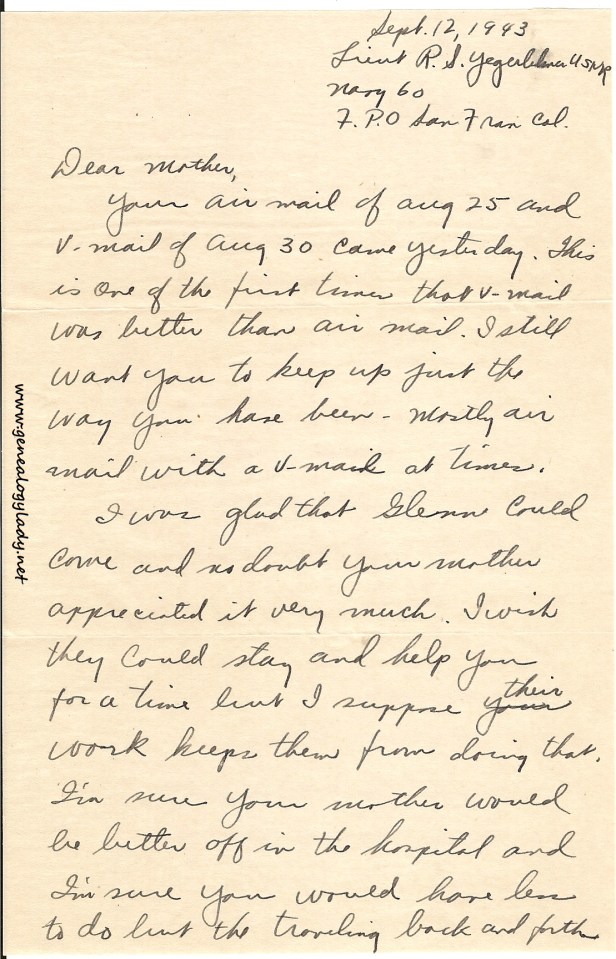 Sept. 12, 1943
Lieut R. S. Yegerlehner USNR
Navy 60
F.P.O San Fran Cal.
Dear Mother,
Your air mail of aug 25 and
V-mail of Aug 30 came yesterday. This
is one of the first times that V-mail
was better than air mail. I still
want you to keep up just the
way you have been - mostly air
mail with a V-mail at times.
I was glad that Glenn could
come and no doubt your mother
appreciated it very much. I wish
they could stay and help you
for a time but I suppose your their
work keeps them from doing that.
I'm sure your mother would
be better off in the hospital and
I'm sure you would have less
to do but the traveling back and forth
www.genealogylady.net